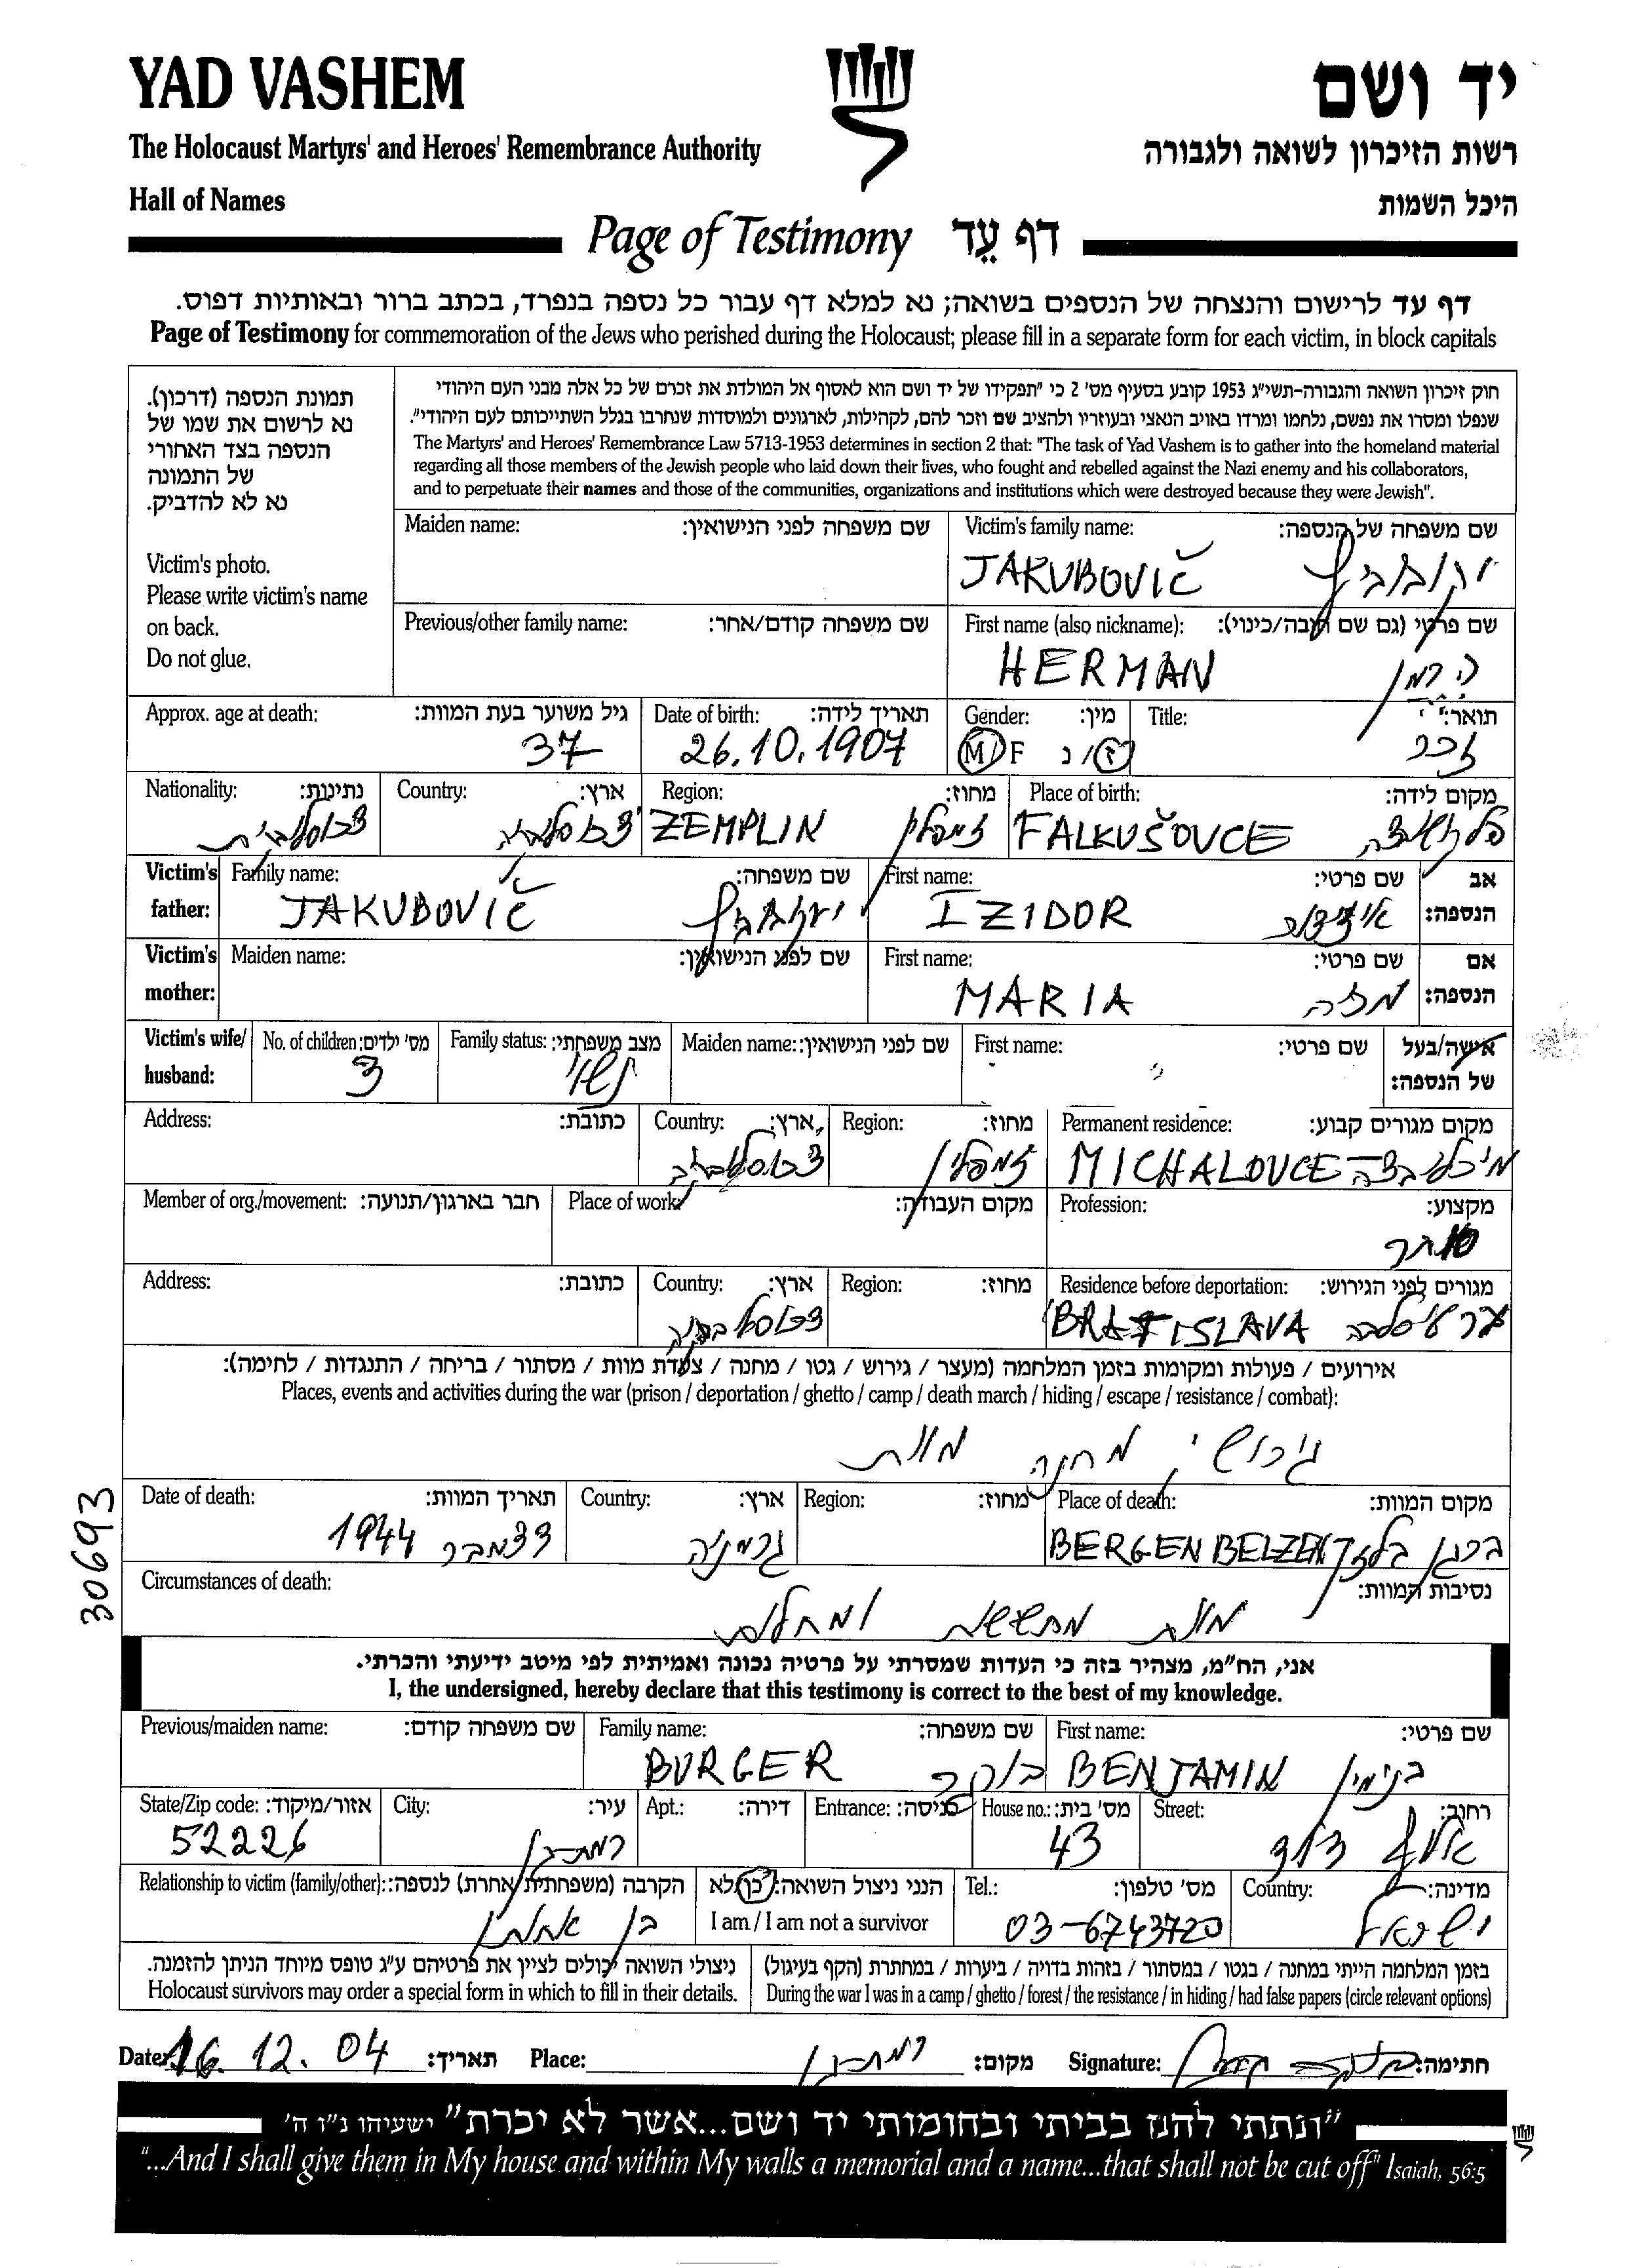 YAD VASHEM
יד ושם
The Holocaust Martyrs' and Heroes' Remembrance Authority
רשות הזיכרון לשואה ולגבורה
Hall of Names
היכל השמות
Page of Testimony דף עֵד
דף עד לרישום והנצחה של הנספים בשואה; נא למלא דף עבור כל נספה בנפרד, בכתב ברור ובאותיות דפוס.
Page of Testimony for commemoration of the Jews who perished during the Holocaust; please fill in a separate form for each victim, in block capitals
תמונת הנספה (דרכון).
נא לרשום את שמו של
הנספה בצד האחורי
של התמונה
נא לא להדביק.
Victim's photo.
Please write victim's name
on back.
Do not glue.
חוק זיכרון השואה והגבורה-תשי"ג 1953 קובע בסעיף מס' 2 כי "תפקידו של יד ושם הוא לאסוף אל המולדת את זכרם של כל אלה מבני העם היהודי
שנפלו ומסרו את נפשם, נלחמו ומרדו באויב הנאצי ובעוזריו ולהציב שם וזכר להם, לקהילות, לארגונים ולמוסדות שנחרבו בגלל השתייכותם לעם היהודי".
The Martyrs' and Heroes' Remembrance Law 5713-1953 determines in section 2 that: "The task of Yad Vashem is to gather into the homeland material
regarding all those members of the Jewish people who laid down their lives, who fought and rebelled against the Nazi enemy and his collaborators,
and to perpetuate their names and those of the communities, organizations and institutions which were destroyed because they were Jewish".
Maiden name: שם משפחה לפני הנישואין: Victim's family name: שם משפחה של הנספה:
JAKUBOVIČ יקובוביץ
Previous/other family name: שם משפחה קודם/אחר: First name (also nickname): שם פרטי (גם שם חיבה/כינוי):
HERMAN הרמן
Approx. age at death: גיל משוער בעת המוות: Date of birth: תאריך לידה: Gender: מין: Title: תואר:
37 26.10.1907 M/F ז/נ זכר
Nationality: נתינות: Country: ארץ: Region: מחוז: Place of birth: מקום לידה:
ZEMPLIN זמפלין FALKUŠOVCE
Victim's father: Family name: שם משפחה: First name: שם פרטי: אב הנספה:
JAKUBOVIČ IZIDOR איזידור
Victim's mother: Maiden name: שם לפני הנישואין: First name: שם פרטי: אם הנספה:
MARIA
Victim's wife/ husband: No. of children: מס' ילדים: Family status: מצב משפחתי: Maiden name: שם לפני הנישואין: First name: שם פרטי: אישה/בעל של הנספה:
3 נשוי
Address: כתובת: Country: ארץ: Region: מחוז: Permanent residence: מקום מגורים קבוע:
זמפלין MICHALOVCE מיכלובצה
Member of org./movement: חבר בארגון/תנועה: Place of work: מקום העבודה: Profession: מקצוע:
סוחר
Address: כתובת: Country: ארץ: Region: מחוז: Residence before deportation: מגורים לפני הגירוש:
BRATISLAVA
אירועים / פעולות ומקומות בזמן המלחמה (מעצר / גירוש / גטו / מחנה / צעדת מוות / מסתור / בריחה / התנגדות / לחימה):
Places, events and activities during the war (prison / deportation / ghetto / camp / death march / hiding / escape / resistance / combat):
גירוש, מחנה מוות
Date of death: תאריך המוות: Country: ארץ: Region: מחוז: Place of death: מקום המוות:
דצמבר 1944 גרמניה BERGEN BELZEN ברגן בלזן
Circumstances of death: נסיבות המוות:
מוות מתשישות ומחלות
30693
אני, הח"מ, מצהיר בזה כי העדות שמסרתי על פרטיה נכונה ואמיתית לפי מיטב ידיעתי והכרתי.
I, the undersigned, hereby declare that this testimony is correct to the best of my knowledge.
Previous/maiden name: שם משפחה קודם: Family name: שם משפחה: First name: שם פרטי:
BURGER בורגר BENJAMIN בנימין
State/Zip code: אזור/מיקוד: City: עיר: Apt.: דירה: Entrance: כניסה: House no.: מס' בית: Street: רחוב:
52226 רמת-גן 43 אלוף דוד
Relationship to victim (family/other): הקרבה (משפחתית/אחרת) לנספה: הנני ניצול השואה: כן/לא Tel.: מס' טלפון: Country: מדינה:
בן אחותו I am / I am not a survivor 03-6743720 ישראל
ניצולי השואה יכולים לציין את פרטיהם ע"ג טופס מיוחד הניתן להזמנה.
Holocaust survivors may order a special form in which to fill in their details.
בזמן המלחמה הייתי במחנה / בגטו / במסתור / בזהות בדויה / ביערות / במחתרת (הקף בעיגול)
During the war I was in a camp / ghetto / forest / the resistance / in hiding / had false papers (circle relevant options)
Date: 16.12.04 תאריך: Place: רמת-גן מקום: Signature: חתימה:
"ונתתי להם בביתי ובחומותי יד ושם...אשר לא יכרת" ישעיהו נ"ו ה'
"...And I shall give them in My house and within My walls a memorial and a name...that shall not be cut off" Isaiah, 56:5